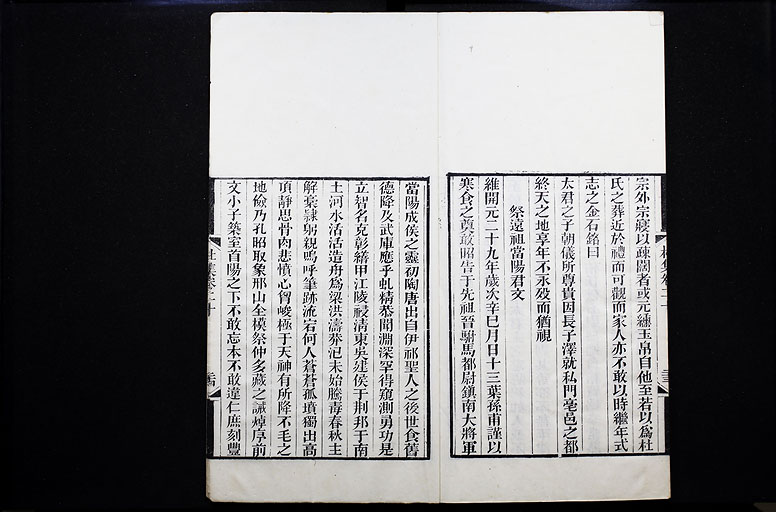 宗外宗寢以疎闊者或元纁玉帛自他至若以爲杜
氏之葬近於禮而可觀而家人亦不敢以時繼年式
志之金石銘曰
太君之子朝儀所尊貴因長子澤就私門亳邑之都
終天之地享年不永歿而猶視
祭遠祖當陽君文
維開元二十九年歲次辛巳月日十三葉孫甫謹以
寒食之奠敢昭告于先祖晉駙馬都尉鎮南大將軍
當陽成侯之靈初陶唐出自伊祁聖人之後世食舊
德降及武庫應乎虬精恭聞淵深罕得窺測勇功是
立智名克彰繕甲江陵祲清東吳建侯于荆邦于南
土河水活活造舟爲梁洪濤莽汜未始騰毒春秋主
解稾隸躬親嗚呼筆跡流宕何人蒼蒼孤墳獨出高
頂靜思骨肉悲憤心胷峻極于天神有所降不毛之
地儉乃孔昭取象邢山全模祭仲多藏之誡焯序前
文小子築室首陽之下不敢忘本不敢違仁庶刻豐
杜集卷二十